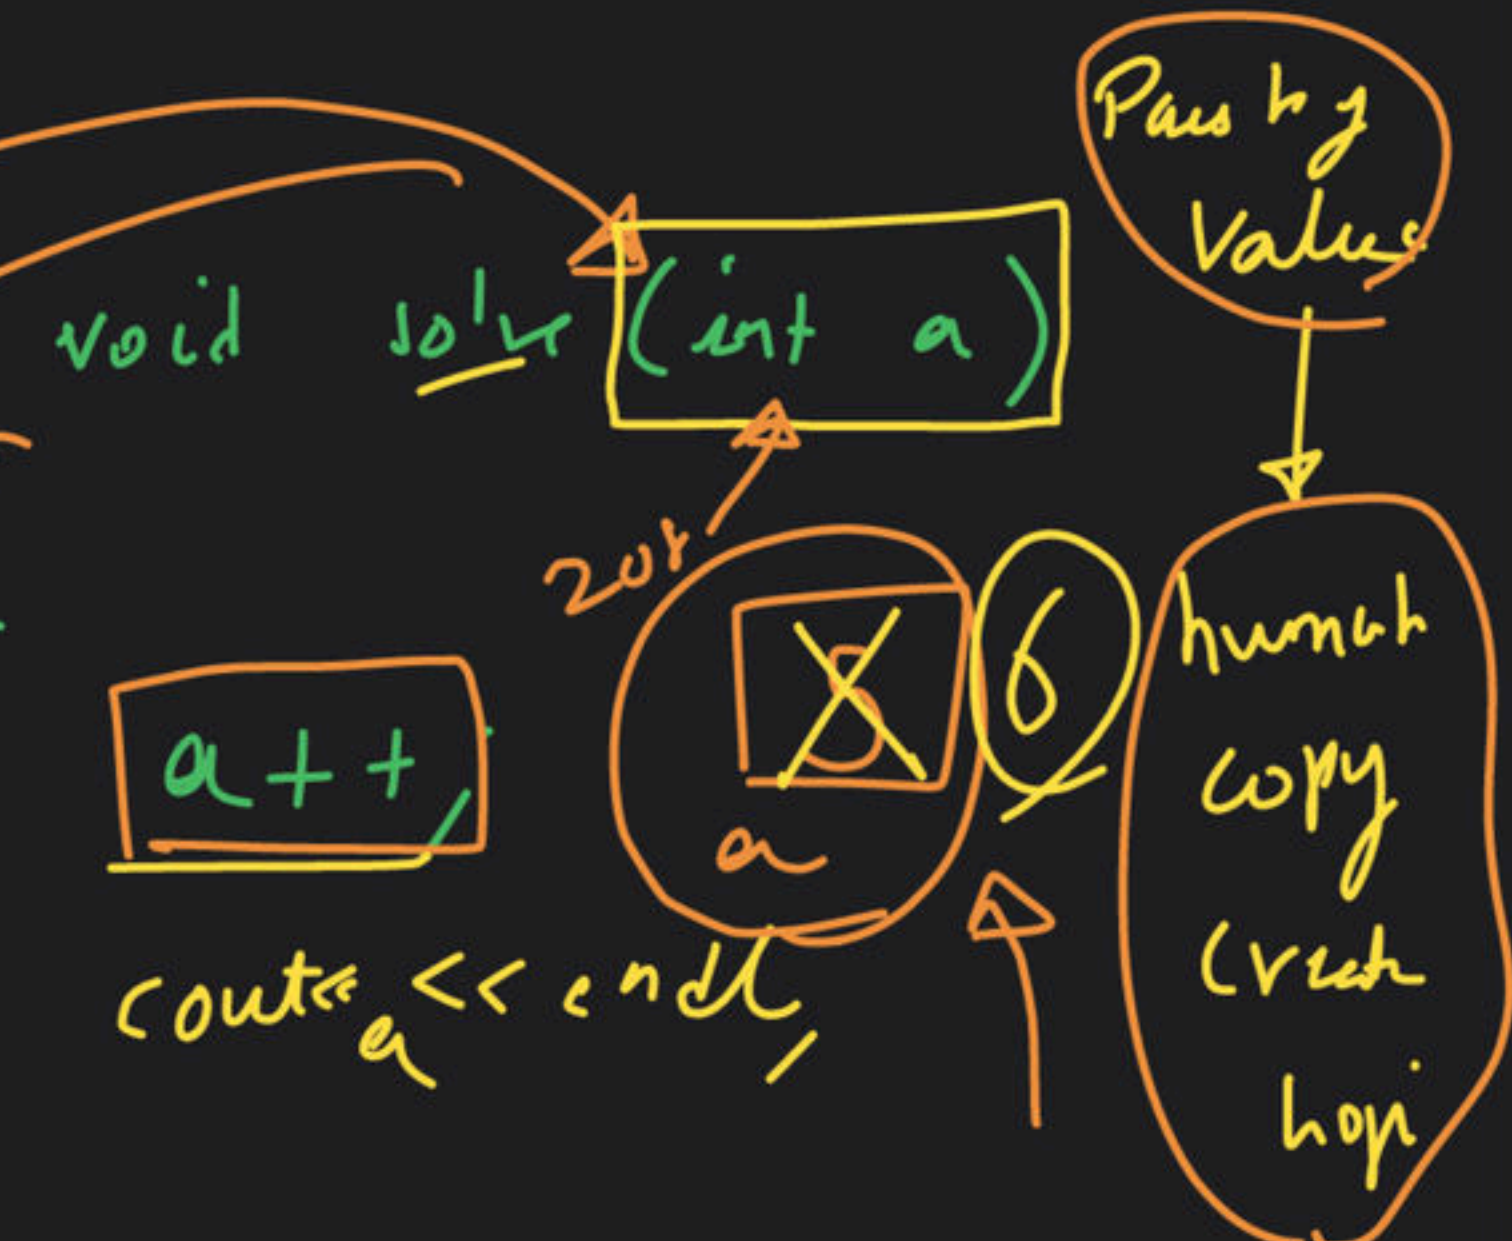 Pass by
Value
void solve (int a)
208
5
6
a++;
a
cout<< a << endl;
copy
create
hogi